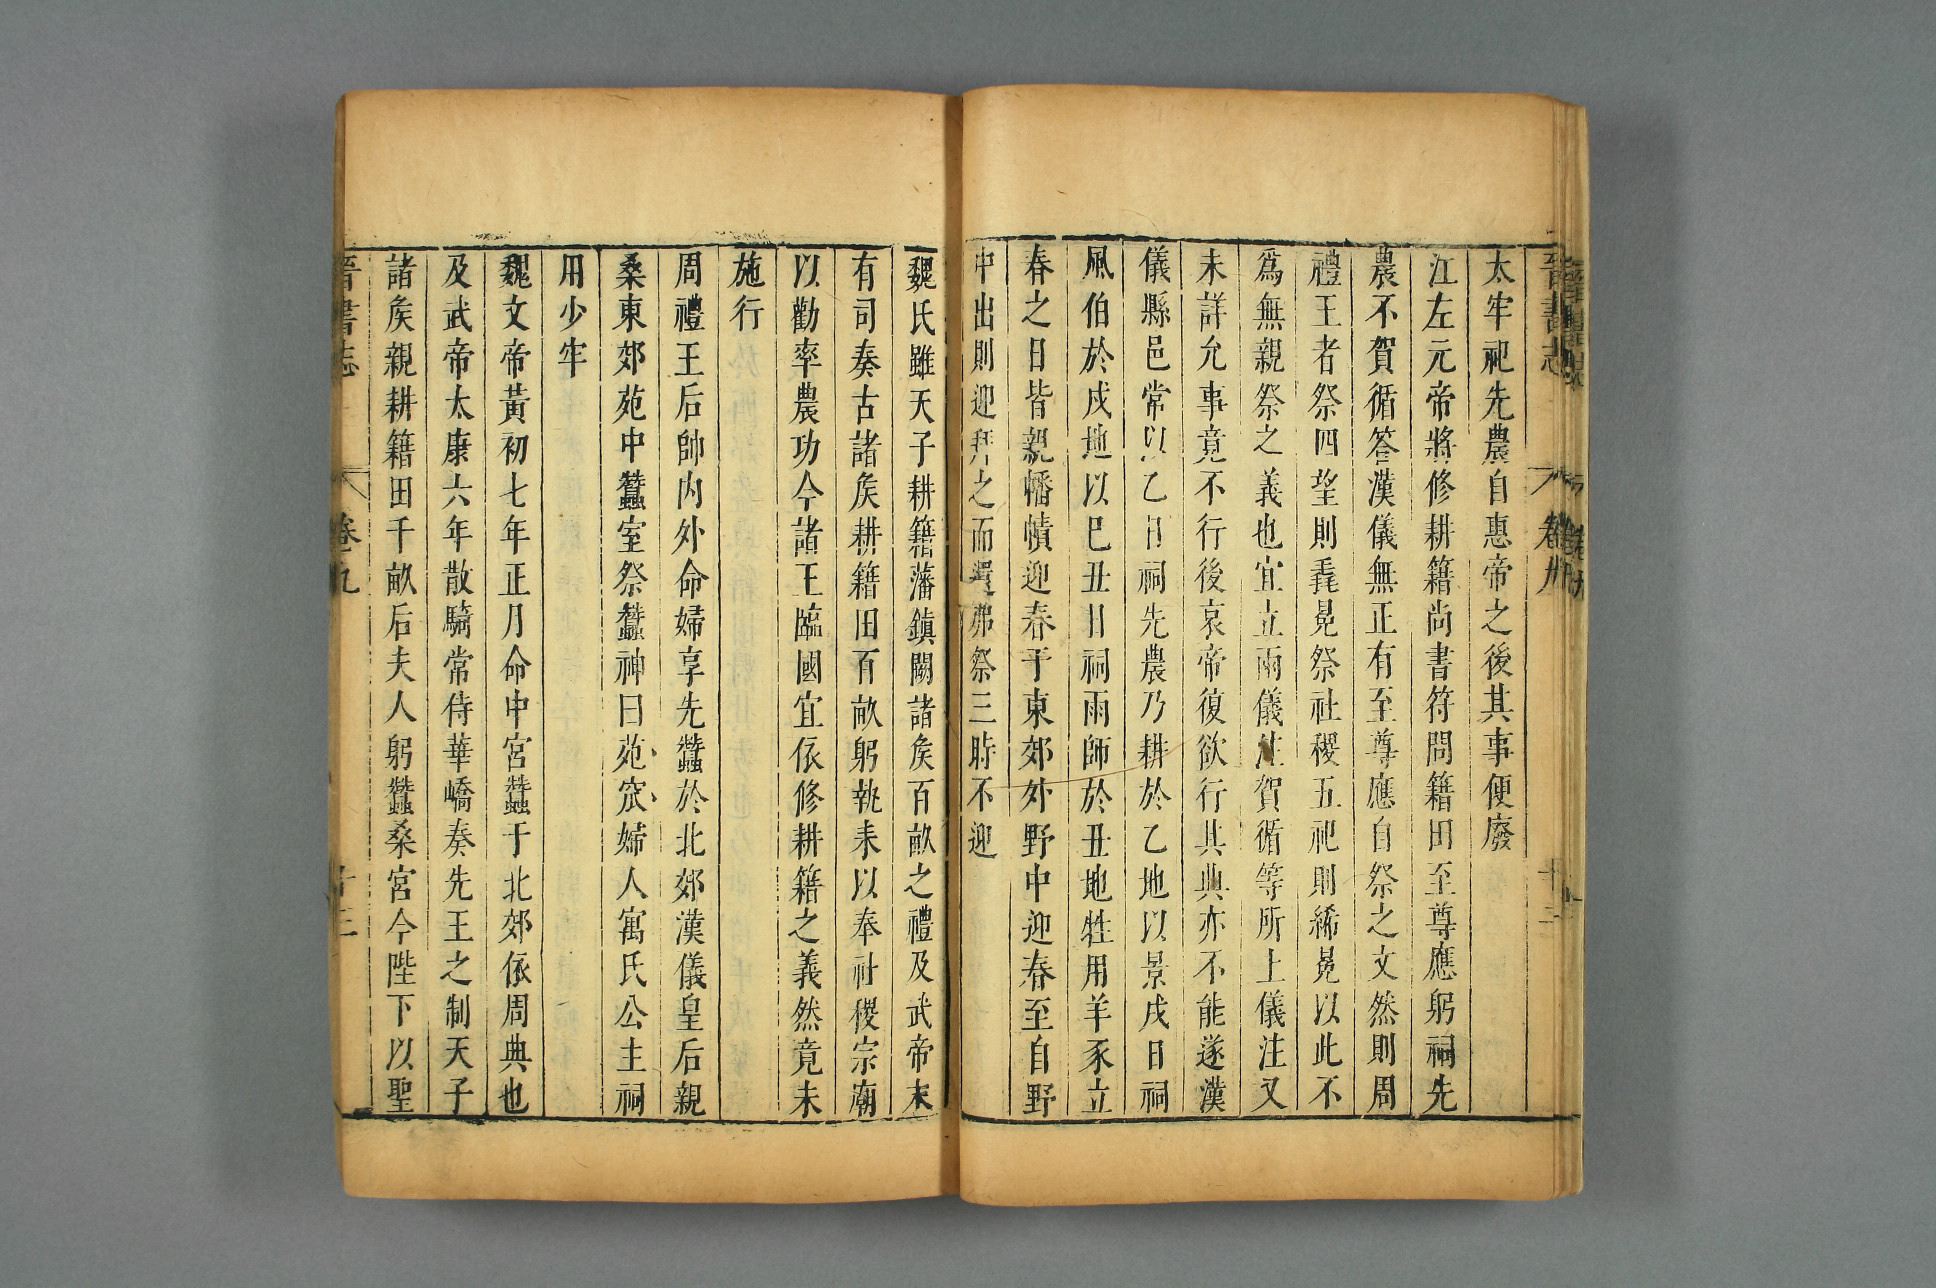 太牢祀先農自惠帝之後其事便廢
江左元帝將修耕籍尚書符問籍田至尊應躬祠先
農不賀循答漢儀無正有至尊應自祭之文然則周
禮王者祭四望則毳冕祭社稷五祀則絺冕以此不
爲無親祭之義也宜立兩儀注賀循等所上儀注又
未詳允事竟不行後哀帝復欲行其典亦不能遂漢
儀縣邑常以乙日祠先農乃耕於乙地以景戌日祠
風伯於戌地以巳丑日祠雨師於丑地牲用羊豕立
春之日皆親幡幘迎春于東郊外野中迎春至自野
中出則迎拜之而還弗祭三時不迎
魏氏雖天子耕籍藩鎮闕諸矦百畝之禮及武帝末
有司奏古諸矦耕籍田百畝躬執耒以奉社稷宗廟
以勸率農功今諸王臨國宜依修耕籍之義然竟未
施行
周禮王后帥內外命婦享先蠶於北郊漢儀皇后親
桑東郊苑中蠶室祭蠶神曰苑窳婦人寓氏公主祠
用少牢
魏文帝黃初七年正月命中宮蠶于北郊依周典也
及武帝太康六年散騎常侍華嶠奏先王之制天子
諸矦親耕籍田千畝后夫人躬蠶桑宮今陛下以聖
晉書志 卷九